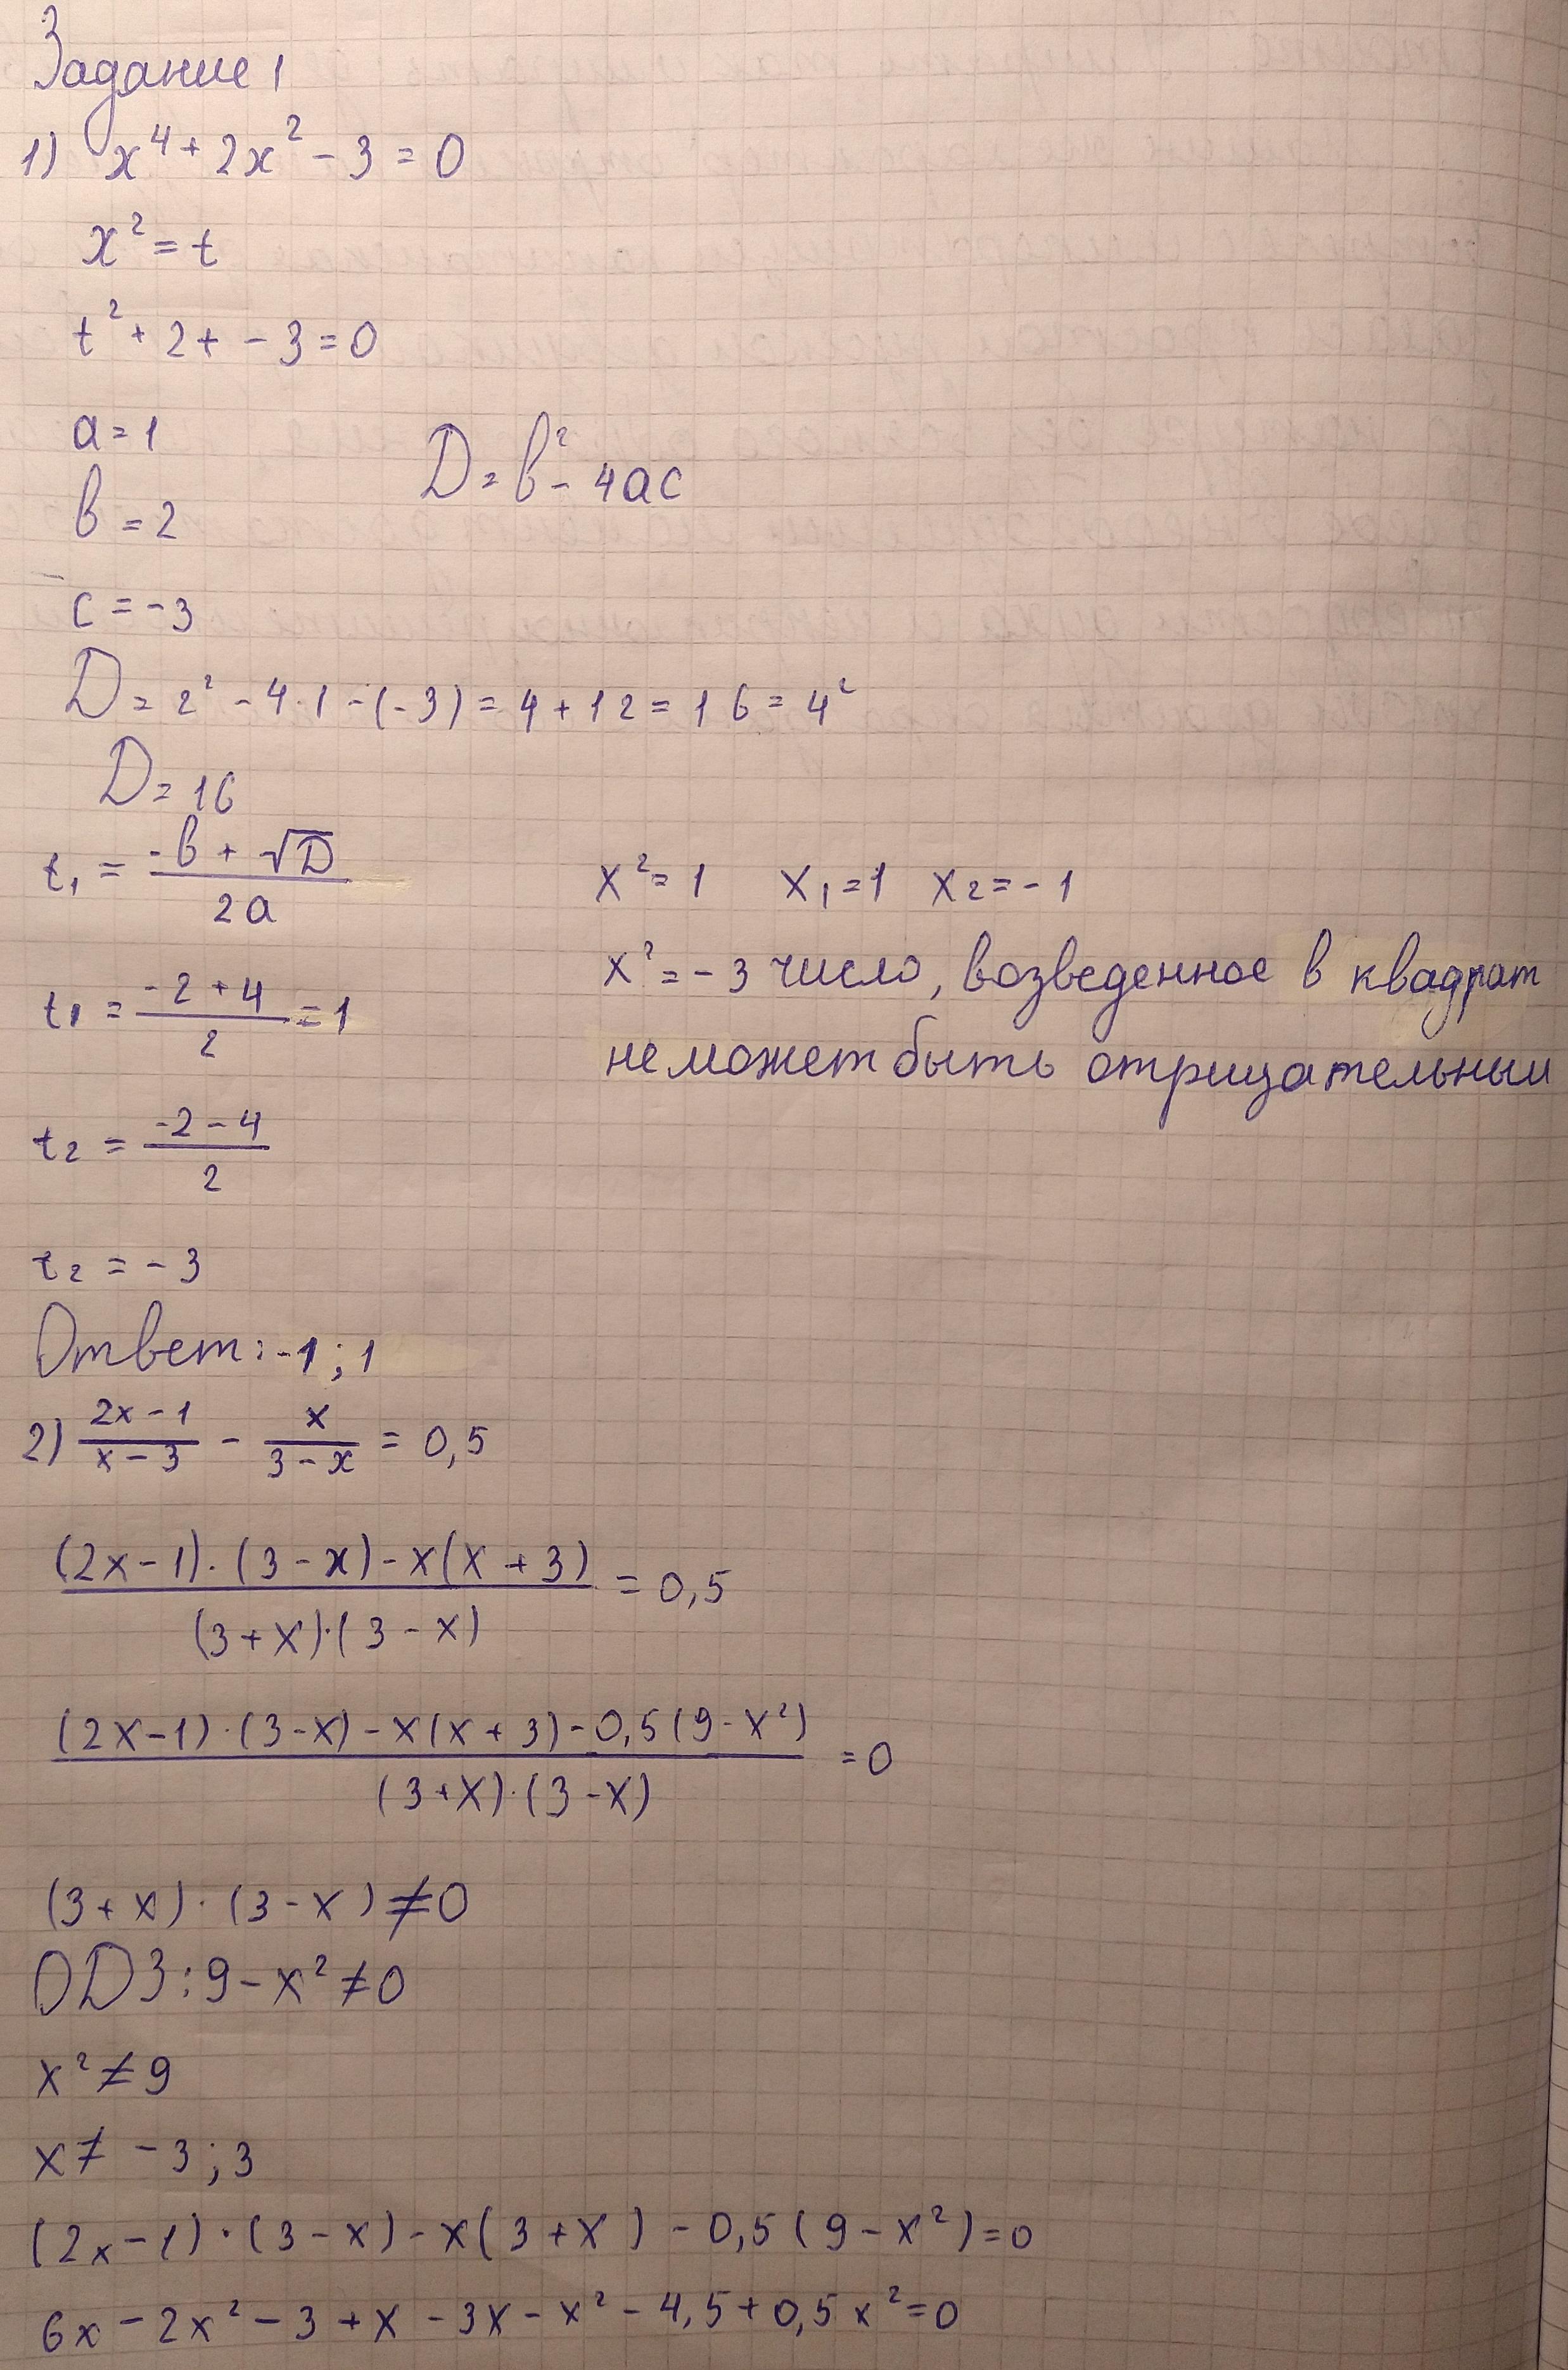 Задание 1
1) x⁴ + 2x² - 3 = 0
x² = t
t² + 2t - 3 = 0
a = 1
b = 2
D = b² - 4ac
c = -3
D = 2² - 4·1 - (-3) = 4 + 12 = 16 = 4²
D = 16
t₁ = (-b + √D)/(2a)
x² = 1 x₁ = 1 x₂ = -1
x² = -3 число, возведенное в квадрат
не может быть отрицательным
t₁ = (-2 + 4)/2 = 1
t₂ = (-2 - 4)/2
t₂ = -3
Ответ: -1; 1
2) (2x - 1)/(x - 3) - x/(3 - x) = 0,5
((2x - 1)·(3 - x) - x(x + 3))/((3 + x)·(3 - x)) = 0,5
((2x - 1)·(3 - x) - x(x + 3) - 0,5(9 - x²))/((3 + x)·(3 - x)) = 0
(3 + x)·(3 - x) ≠ 0
ОDЗ: 9 - x² ≠ 0
x² ≠ 9
x ≠ -3; 3
(2x - 1)·(3 - x) - x(3 + x) - 0,5(9 - x²) = 0
6x - 2x² - 3 + x - 3x - x² - 4,5 + 0,5x² = 0